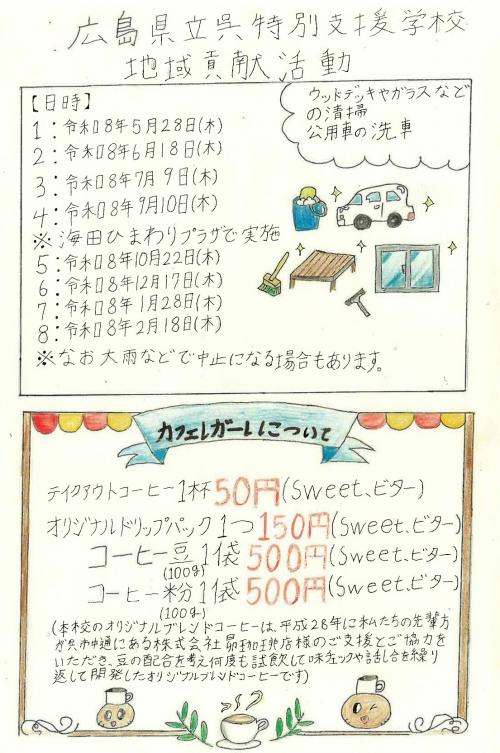 広島県立呉特別支援学校
地域貢献活動
【日時】
1：令和8年5月28日(木)
2：令和8年6月18日(木)
3：令和8年7月9日(木)
4：令和8年9月10日(木)
※海田ひまわりプラザで実施
5：令和8年10月22日(木)
6：令和8年12月17日(木)
7：令和8年1月28日(木)
8：令和8年2月18日(木)
※なお大雨などで中止になる場合もあります。
ウッドデッキやガラスなど
の清掃
公用車の洗車
カフェレガーレについて
テイクアウトコーヒー1杯50円(Sweet、ビター)
オリジナルドリップパック1つ150円(Sweet、ビター)
コーヒー豆1袋500円(Sweet、ビター)
(100g)
コーヒー粉1袋500円(Sweet、ビター)
(100g)
(本校のオリジナルブレンドコーヒーは、平成28年に私たちの先輩方
が呉市中通にある株式会社昴珈琲店様のご支援とご協力を
いただき、豆の配合を考え何度も試飲して味チェックや話し合を繰り
返して開発したオリジナルブレンドコーヒーです)